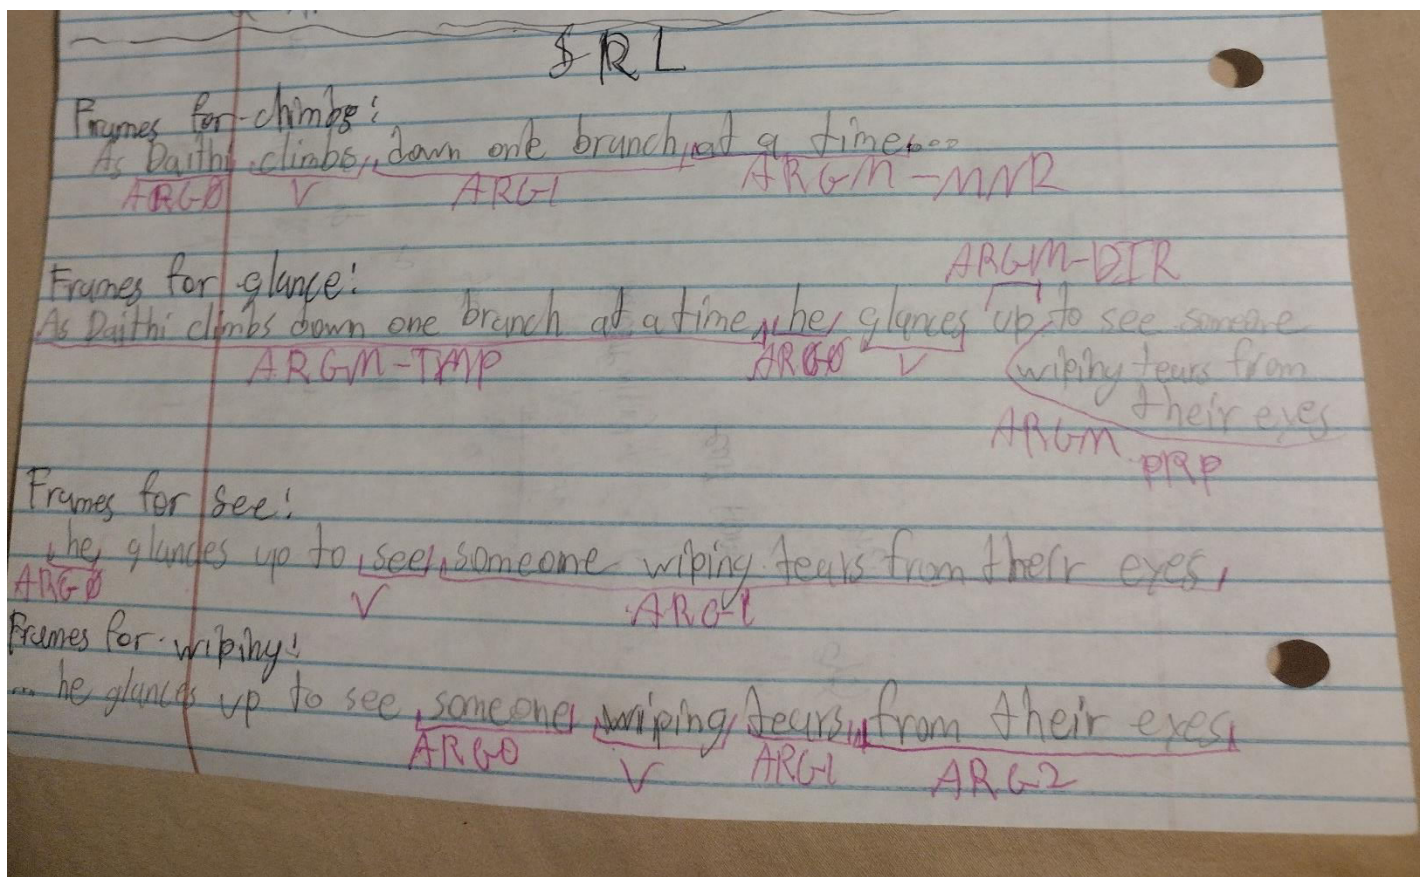 SRL
Frames for climbs:
As Daithi climbs down one branch at a time....
ARG0 V ARG1 ARGM-MNR
ARGM-DIR
Frames for glance:
As Daithi climbs down one branch at a time, he glances up to see someone
wiping tears from
their eyes
ARGM-TMP ARG0 V ARGM-PRP
Frames for see:
he glances up to see someone wiping tears from their eyes
ARG0 V ARG1
Frames for wiping:
... he glances up to see someone wiping tears from their eyes
ARG0 V ARG1 ARG2